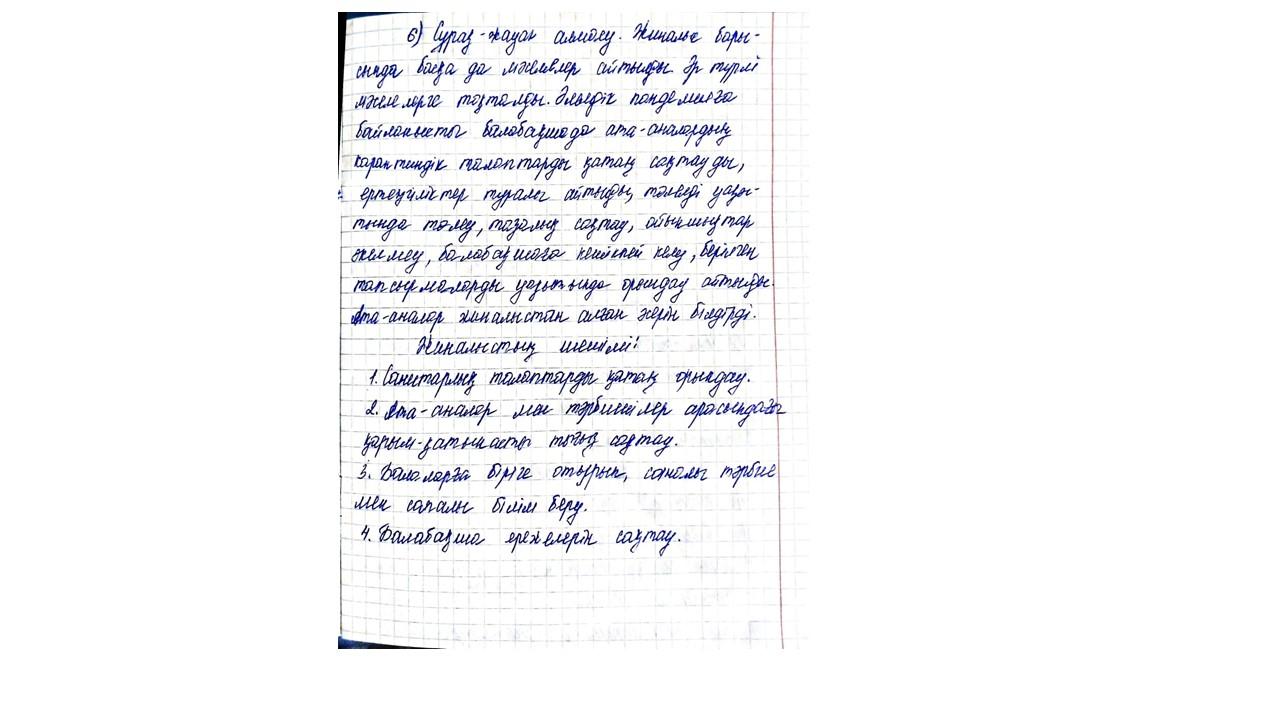 6) Сұрақ-жауап алмасу. Жиналыс бары-
сында басқа да мәселелер айтылды. Әр түрлі
мәселелерге тоқталды. Әлемдік пандемияға
байланысты балабақшада ата-аналардың
карантиндік талаптарды қатаң сақтауды,
ертеңгіліктер туралы айтылды, төлемді уақы-
тында төлеу, тазалық сақтау, ойыншықтар
әкелмеу, балабақшаға кешікпей келу, берілген
тапсырмаларды уақытында орындау айтылды.
Ата-аналар жиналыстан алған әсерін білдірді.
Жиналыстың шешімі:
1. Санитарлық талаптарды қатаң орындау.
2. Ата-аналар мен тәрбиешілер арасындағы
қарым-қатынасты тығыз сақтау.
3. Балаларға бірге отырып, саналы тәрбие
мен сапалы білім беру.
4. Балабақша ережелерін сақтау.